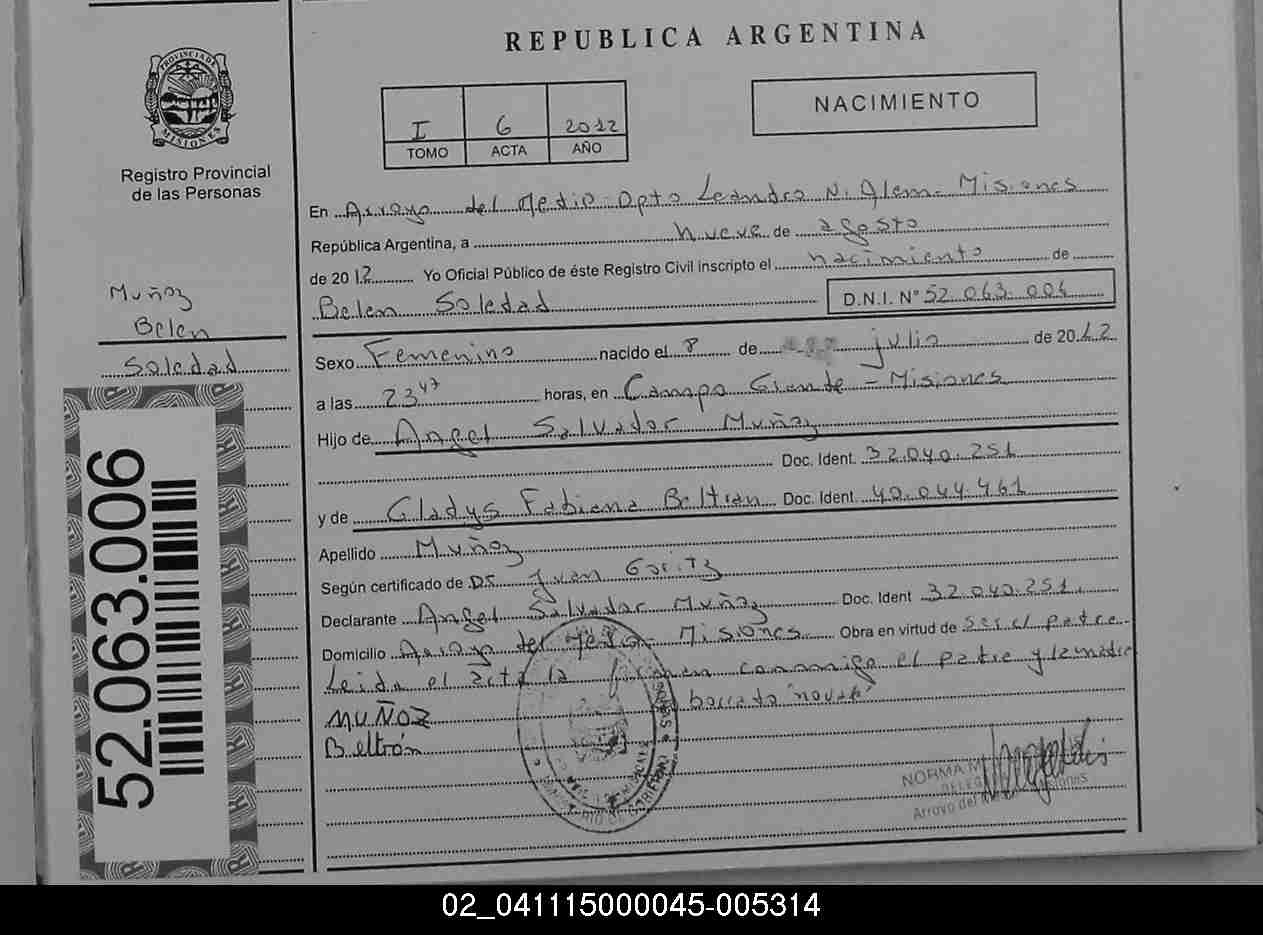 REPUBLICA ARGENTINA
PROVINCIA DE MISIONES
Registro Provincial
de las Personas
I 6 2012
TOMO ACTA AÑO
NACIMIENTO
En Arroyo del Medio - Dpto Leandro N. Alem - Misiones
República Argentina, a nueve de agosto
de 2012 Yo Oficial Público de éste Registro Civil inscripto el nacimiento de
Belen Soledad D.N.I. N° 52.063.006
Muñoz
Belen
Soledad
52.063.006
Sexo Femenino nacido el 8 de julio de 2012
a las 23 47 horas, en Campo Grande - Misiones
Hijo de Angel Salvador Muñoz
Doc. Ident. 32.040.251
y de Gladys Fabiana Beltran Doc. Ident. 40.044.461
Apellido Muñoz
Según certificado de Dr Juan Goritz
Declarante Angel Salvador Muñoz Doc. Ident 32.040.251
Domicilio Arroyo del Medio - Misiones Obra en virtud de ser el padre
Leida el acta la firman conmigo el padre y la madre
MUÑOZ borrado
Beltrán
NORMA
Arroyo del
02_041115000045-005314